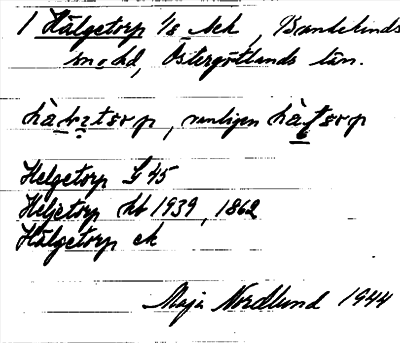 1 Hälgetorp 1/8 Mh, Bankekinds
sn o hd, Östergötlands län.
hàlgetsorp, vanligen hàltsorp
Helgetorp G 45
Heljetorp hb 1939, 1862
Hälgetorp ek
Maja Nordlund 1944